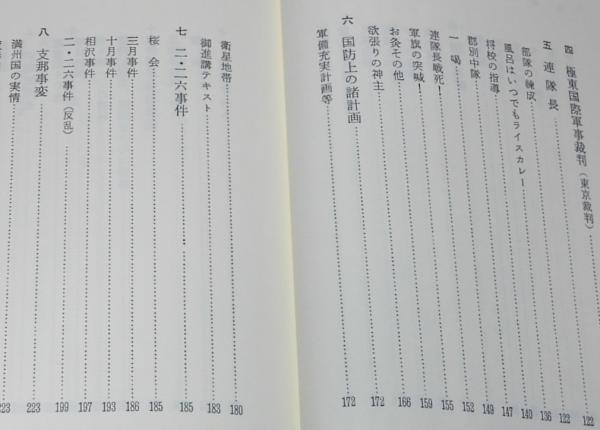 四 極東国際軍事裁判(東京裁判)……122
五 連隊長……122
部隊の錬成……136
風呂はいつでもライスカレー……140
将校の指導……147
郡別中隊……149
一喝……152
連隊長戦死!……155
軍旗の突喊!……159
お灸その他……166
欲張りの神主……172
六 国防上の諸計画……172
軍備充実計画等……
衛星地帯……180
御進講テキスト……183
七 二・二六事件……185
桜会……185
三月事件……186
十月事件……193
相沢事件……197
二・二六事件(反乱)……199
八 支那事変……223
満州国の実情……223